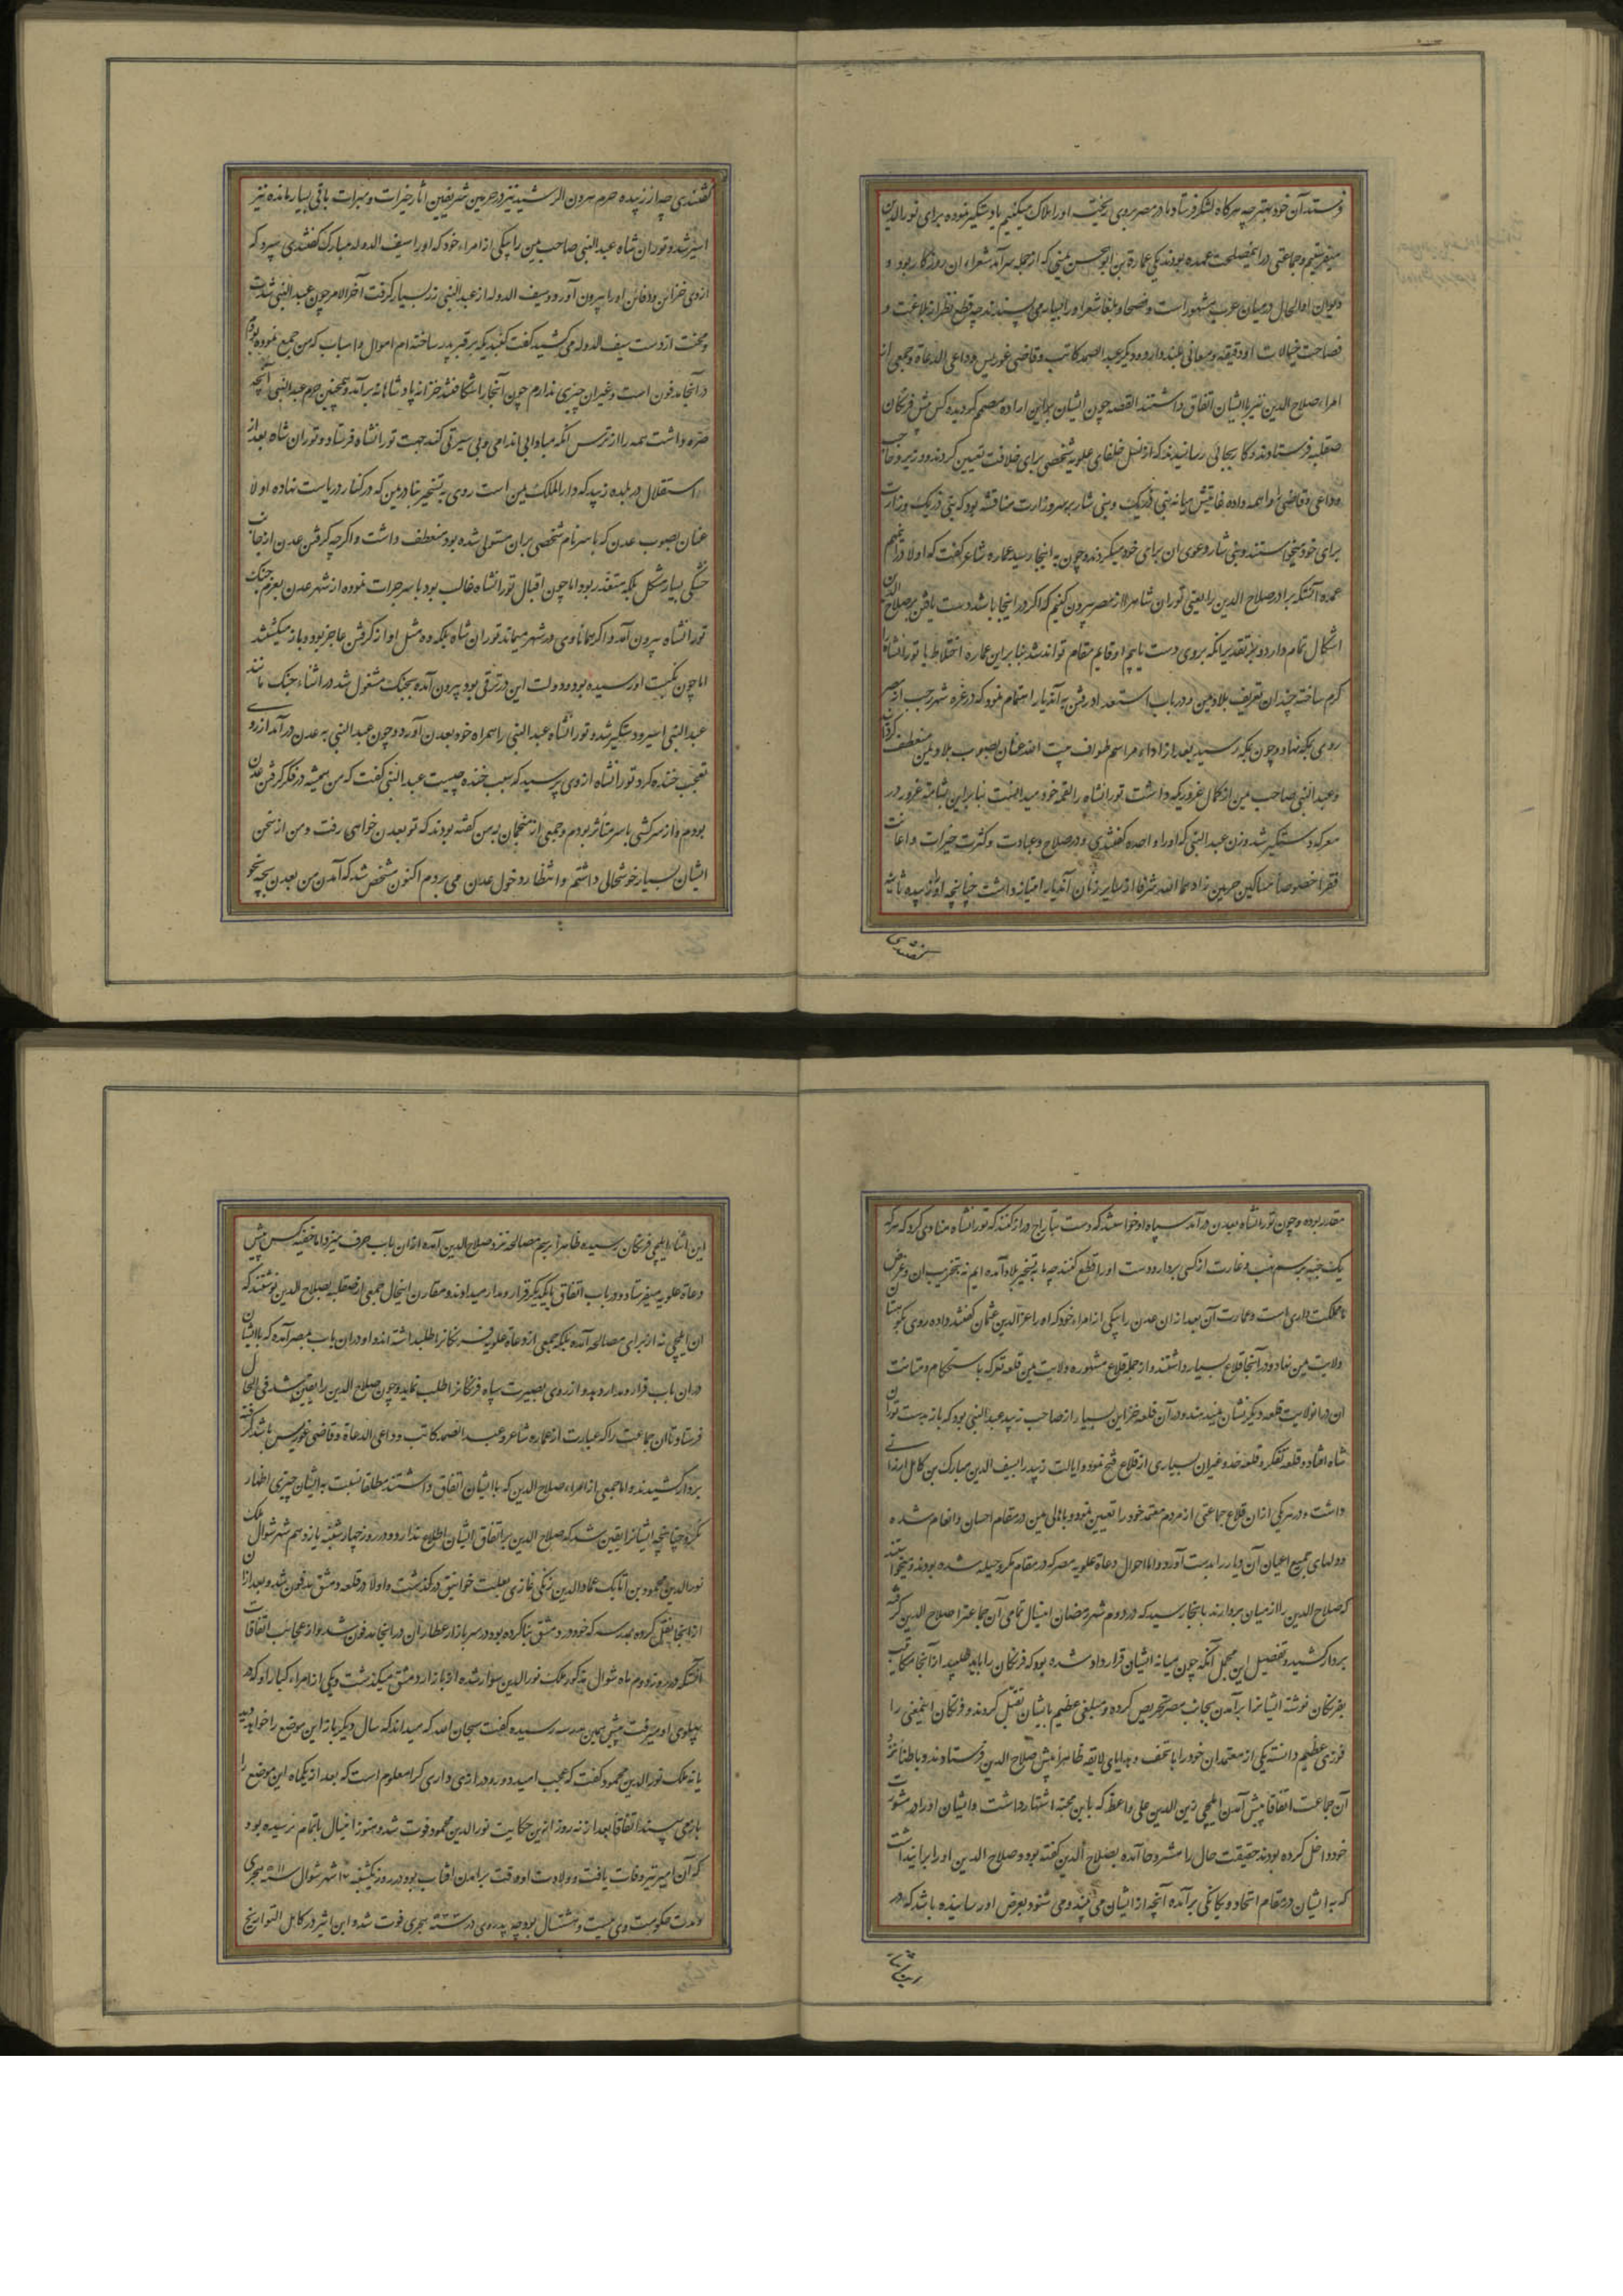 فرستدآن خود بهتر چه هرکاه لشکر فرستاد ما در مصر بروی ریخته اورا هلاک میکنیم یا دستکیر نموده برای نورالدین
میفرستیم و جماعتی در این مصلحت عمده بودند یکی عمارة بن ابوالحسن یمنی که از جمله سرآمد شعراء آن روزکار بود و
دیوان او الحال در میان عرب مشهور است و فصحا و بلغا شعر اورا بسیار می پسندند چه قطع نظر از بلاغت و
فصاحت خیالات او دقیقه و معانی بلند دارد و دیکر عبدالصمد کاتب و قاضی عویرس و داعی الدعاة و جمعی از
امراء صلاح الدین نیز با ایشان اتفاق داشتند القصه چون ایشان براین اراده مصمم کردیده کس پیش فرنکان
صقلیه فرستادند و کار بجائی رسانیدند که از نسل خلفای علویه شخصی برای خلافت تعیین کردند و وزیر و حاجب
و داعی و قاضی را همه داده غایتش میانه بنی رزیک و بنی شاور بر سر وزارت مناقشه بود که بنی رزیک وزارت
برای خود میخواستند و بنی شاور دعوی آن برای خود میکردند و چون به اینجا رسید عماره شاعر کفت که اولا در این مهم
عمده آنستکه برادر صلاح الدین را یعنی توران شاه را از مصر بیرون کنیم که اکر در اینجا باشد دست یافتن بر صلاح الدین
اشکال تمام دارد و بر تقدیر آنکه بروی دست یابیم او قایم مقام تواند شد بنا براین عماره اختلاط با تورانشاه را
کرم ساخته چندان تعریف بلاد یمن و در باب استعداد رفتن به آندیار اهتمام نمود که در غره شهر رجب از مصر
روی بمکه نهاد و چون بمکه رسید بعد از اداء مراسم طواف بیت الله عنان بصوب بلاد یمن منعطف کردانید
و عبدالنبی صاحب یمن از کمال غروریکه داشت تورانشاه را لقمه خود میدانست بنا براین بشامت غرور در
معرکه دستکیر شد و زن عبدالنبی که اورا واحده کفتندی و در صلاح و عبادت و کثرت خیرات و اعانت
فقرا خصوصاً مساکین حرمین زادهما الله شرفا از سایر زنان آندیار امتیاز داشت چنانچه اورا زبیده ثانیه
کفتندی
کفتندی چه از زبیده حرم هرون الرشید نیز در حرمین شریفین آثار خیرات و مبرات باقی بسیار مانده نیز
اسیر شد و توران شاه عبدالنبی صاحب یمن را بیکی از امراء خود که اورا سیف الدوله مبارک کفتندی سپرد که
از وی خزائن و دفائن اورا بیرون آورد و سیف الدوله از عبدالنبی زر بسیار کرفت آخرالامر چون عبدالنبی شدت
و محنت از دست سیف الدوله می کشید کفت کنبدیکه بر قبر پدر ساخته ام اموال و اسباب که من جمع نموده بودم
در آنجا مدفون است و غیر آن چیزی ندارم چون آنجارا شکافتند خزانه پادشاهانه برآمد و همچنین حرم عبدالنبی آنچه
ذخیره داشت همه را از ترس آنکه مبادا بی اندامی و بی سیرتی کنند جهت تورانشاه فرستاد و توران شاه بعد از
استقلال در بلده زبید که دارالملک یمن است روی به تسخیر بنادر یمن که در کنار دریاست نهاده اولا
عنان بصوب عدن که یاسر نام شخصی بران مستولی شده بود منعطف داشت و اکرچه کرفتن عدن از جانب
خشکی بسیار مشکل بلکه متعذر بود اما چون اقبال تورانشاه غالب بود یاسر جرات نموده از شهر عدن بعزم جنک
تورانشاه بیرون آمد و اکر همانا وی در شهر میماند توران شاه بلکه ده مثل او از کرفتن عاجز بود و باز میکشتند
اما چون نکبت اورسیده بود و دولت این در ترقی بود بیرون آمده بجنک مشغول شد در اثناء جنک مانند
عبدالنبی اسیر و دستکیر شد و تورانشاه عبدالنبی را همراه خود بعدن آورد و چون عبدالنبی به عدن درآمد از روی
تعجب خنده کرد تورانشاه از وی پرسید که سبب خنده چیست عبدالنبی کفت که من همیشه در فکر کرفتن عدن
بودم و از سرکشی یاسر متأثر بودم و جمعی از منجمان به من کفته بودند که تو بعدن خواهی رفت و من از سخن
ایشان بسیار خوشحالی داشتم و انتظار دخول عدن می بردم اکنون مشخص شد که آمدن من بعدن بچه نحو
مقدر بوده و چون تورانشاه بعدن درآمد سپاه او خواستند که دست بتاراج دراز کنند که تورانشاه منادی کرد که هرکه
یک حبه برسم نهب و غارت از کسی بردارد دست اورا قطع کنند چه ما به تسخیر بلاد آمده ایم نه بتخریب آن و غرض
ما مملکت داری است و عمارت آن بعد از آن عدن را بیکی از امراء خود که اورا عزالدین عثمان کفتند داده روی بکوهستان
ولایت یمن نهاد و در آنجا قلاع بسیار داشتند و از جمله قلاع مشهوره ولایت یمن قلعه تعز که باستحکام و متانت
آن در آنولایت قلعه دیکر نشان نمیدهند و در آن قلعه خزاین بسیار از صاحب زبید عبدالنبی بود که باز بدست توران
شاه افتاد و قلعه تعکر و قلعه خند و غیر آن بسیاری از قلاع فتح نمود و ایالت زبید را بسیف الدین مبارک بن کامل ارزانی
داشت و در هر یکی از ان قلاع جماعتی از مردم معتمد خود را تعیین نمود و با اهالی یمن در مقام احسان و انعام شده
دولهای جمیع اعیان آن دیار را بدست آورد و اما احوال دعاة علویه مصر که در مقام مکر و حیله شده بودند و میخواستند
که صلاح الدین را از میان بردارند بانجا رسید که در دوم شهر رمضان اینسال تمامی آن جماعترا صلاح الدین کرفته
بردار کشید و تفصیل این مجمل آنکه چون میانه ایشان قرارداد شده بود که فرنکان را باید طلبید از آنجا مکاتیب
بفرنکان نوشته ایشانرا برآمدن بجانب مصر تحریص کرده و مبلغی عظیم بایشان تقبل کردند و فرنکان اینمعنی را
فوزی عظیم دانسته یکی از معتمدان خود را با تحف و هدایای لایقه ظاهرا پیش صلاح الدین فرستادند و باطناً نزد
آن جماعت اتفاقا پیش آمدن ایلچی زین الدین علی واعظ که بابن محبه اشتهار داشت و ایشان اورا در مشورت
خود داخل کرده بودند حقیقت حال را مشروحا آمده بصلاح الدین کفته بود و صلاح الدین اورا برایند داشت
که به ایشان در مقام اتحاد و یکانکی برآمده آنچه از ایشان می بیند و می شنود بعرض او رسانیده باشد که در
این اثنا
این اثنا ایلچی فرنکان رسیده ظاهرا برسم مصالحه نزد صلاح الدین آمده ازان باب حرف میزد اما خفیه کس پیش
دعاة علویه میفرستاد و در باب اتفاق بایکدیکر قرار و مدار میدادند و مقارن اینحال جمعی از صقلیه بصلاح الدین نوشتند که
ان ایلچی نه از برای مصالحه آمده بلکه جمعی از دعاة علویه فرنکانرا طلبداشته اند و او دران باب بمصر آمده که با ایشان
دران باب قرار و مدار دهد و از روی بصیرت سپاه فرنکانرا طلب نماید و چون صلاح الدین را یقین شد فی الحال
فرستاد تا ان جماعت را که عبارت از عماره شاعر و عبدالصمد کاتب و داعی الدعاة و قاضی عویرس باشد کرفته
بردار کشیدند و اما جمعی از امراء صلاح الدین که با ایشان اتفاق داشتند مطلقا نسبت به ایشان چیزی اظهار
نکرد چنانچه ایشانرا یقین شد که صلاح الدین بر اتفاق ایشان اطلاع ندارد و در روز چهارشنبه یازدهم شهر شوال ملک
نورالدین محمود بن اتابک عمادالدین زنکی غازی بعلت خوانیق درکذشت و اولا در قلعه دمشق مدفون شد و بعد از ان
از اینجا نقل کرده بمدرسه که خود در دمشق بنا کرده بود در سر بازار عطاران در اینجا مدفون شد و از عجائب اتفاقات
آنستکه در روز دوم ماه شوال مذکور ملک نورالدین سوار شده از بازار دمشق میکذشت و یکی از امراء کبار او که در
پهلوی او میرفت پیش همین مدرسه رسیده کفت سبحان الله که میداند که سال دیکر باز این موضع را خواهیم دید
یا نه ملک نورالدین محمود کفت که عجب امید دور و درازی داری کرا معلوم است که بعد از یکماه این موضع را
باز می بیند اتفاقا بعد از نه روز ازین حکایت نورالدین محمود فوت شد و هنوز اینسال باتمام نرسیده بود
که آن امیر نیز وفات یافت و ولادت او وقت برامدن افتاب بود در روز یکشنبه ۱۷ شهر شوال سنه ۵۱۱ هجری
و مدت حکومت وی بیست و هشت سال بود چه پدر وی در سنه هجری فوت شد و ابن اثیر در کامل التواریخ